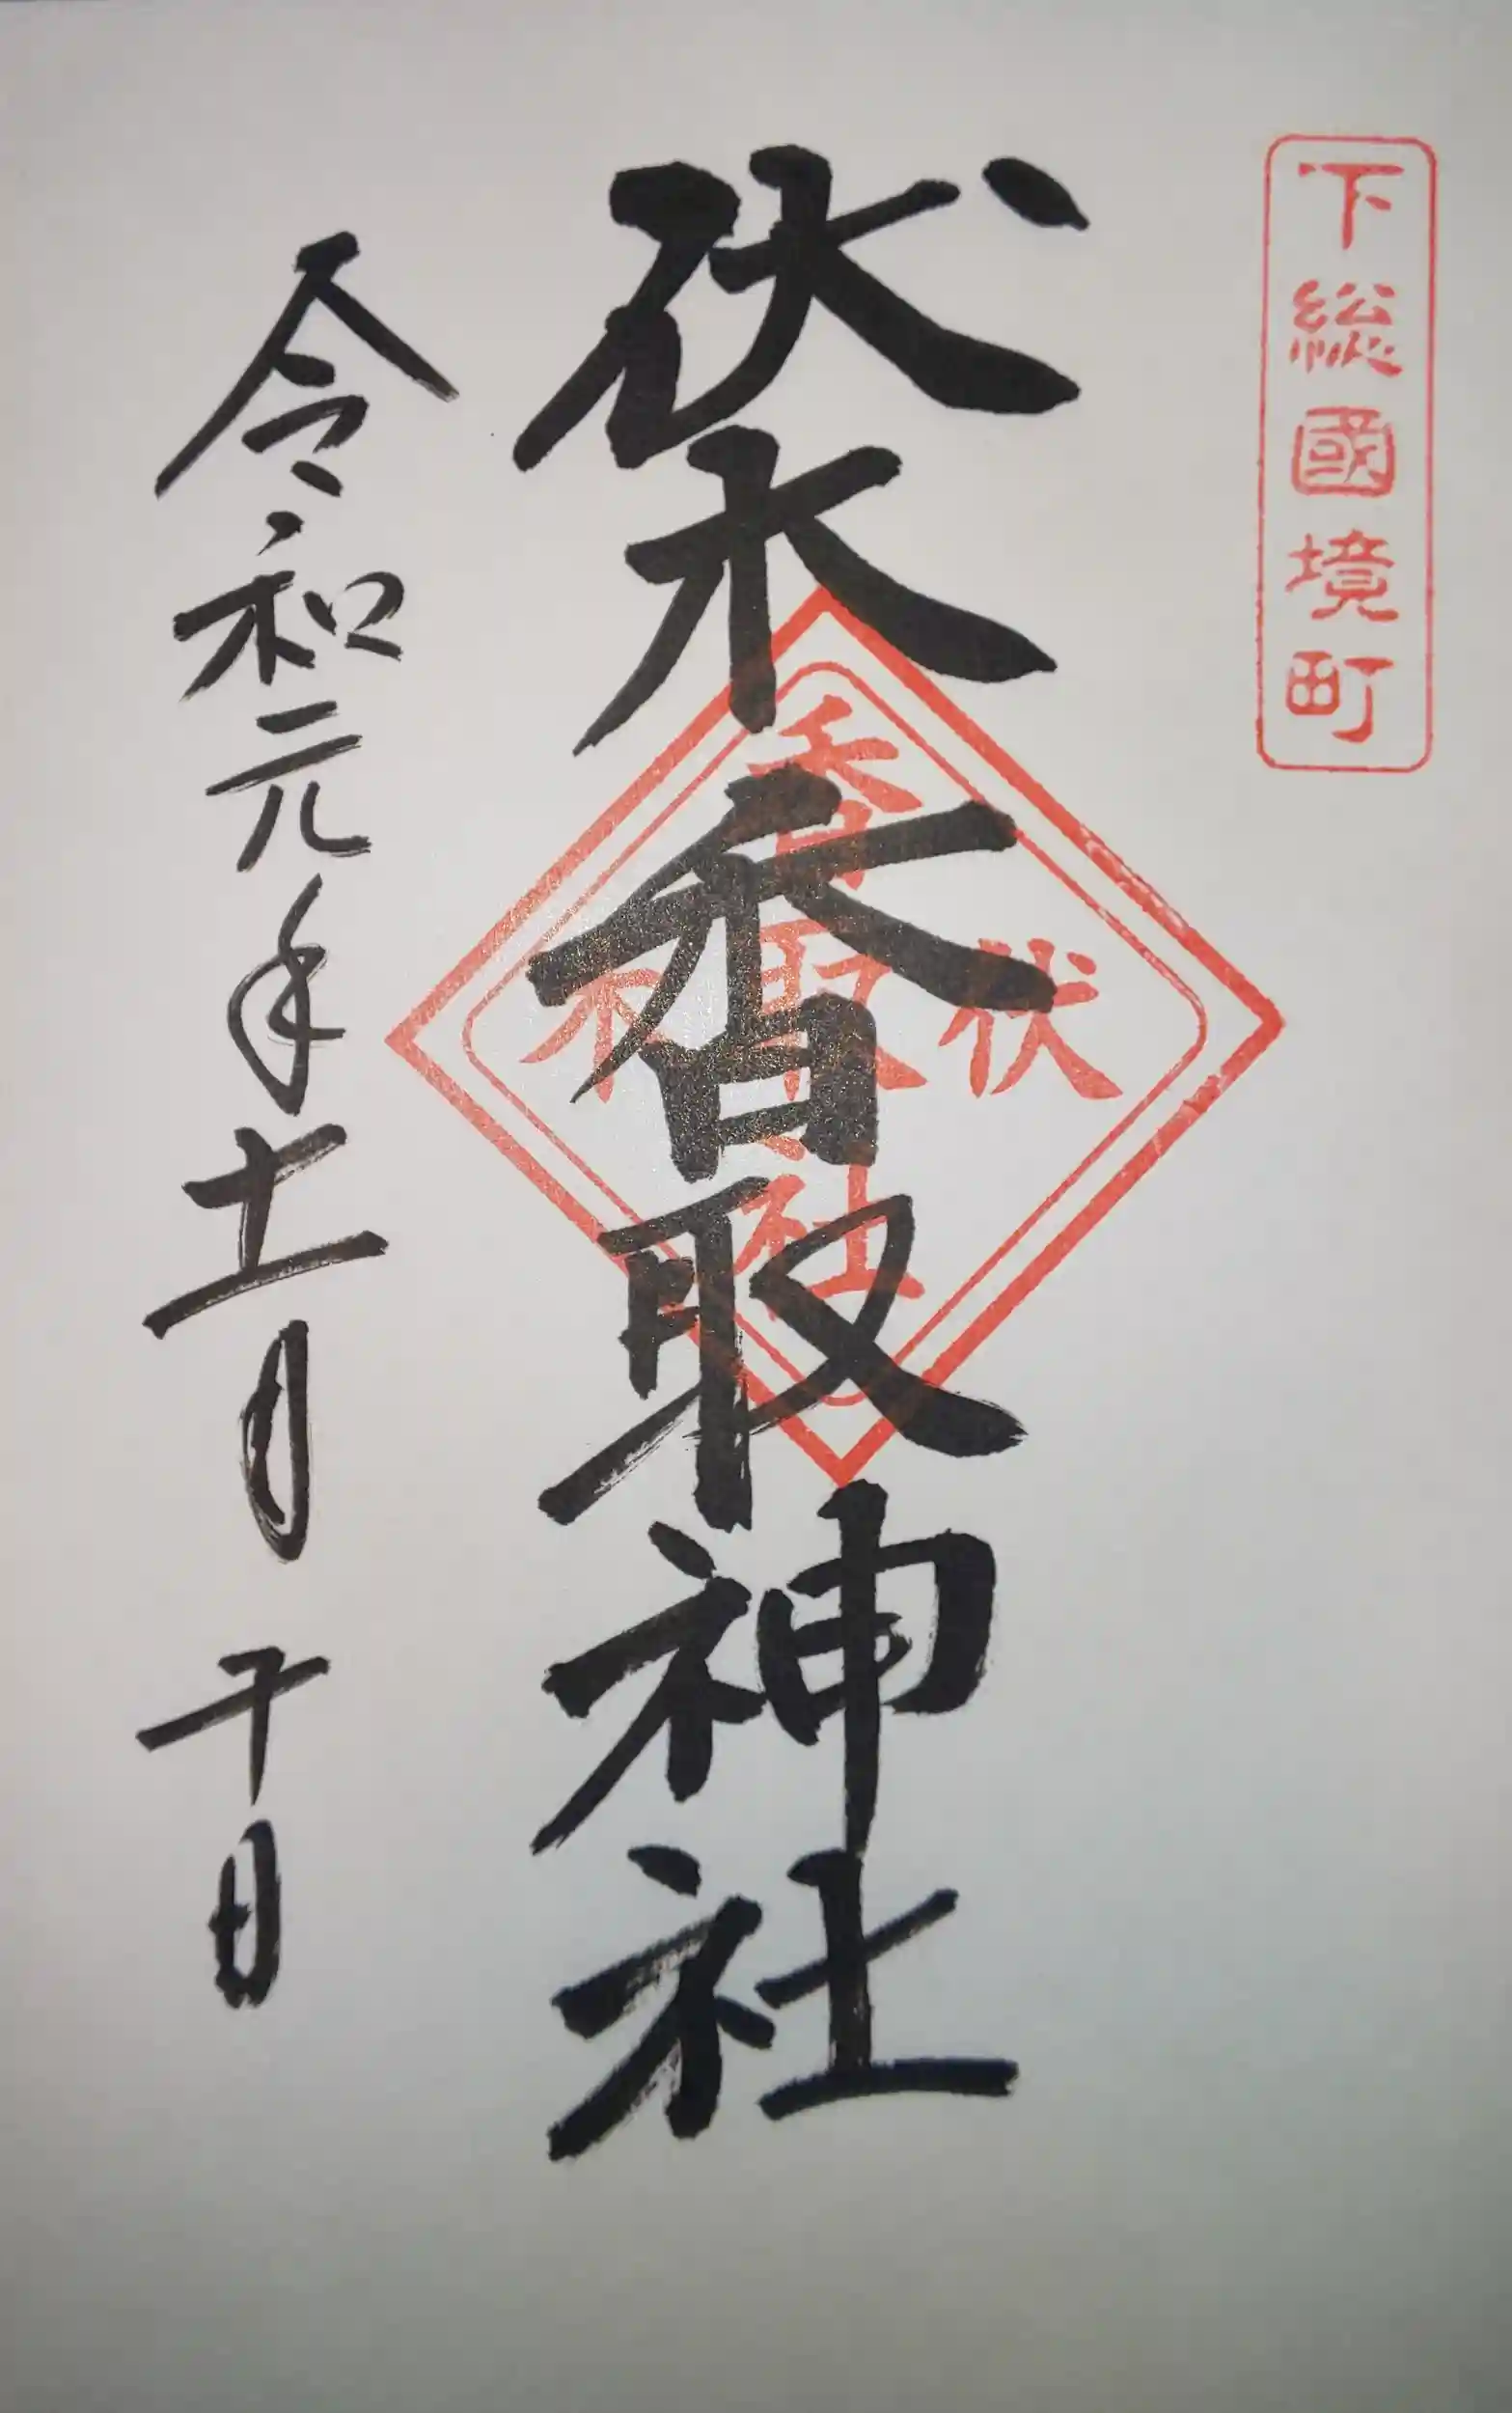 下総國境町
伏木香取神社
伏
香取神社
木
令和元年十一月 日